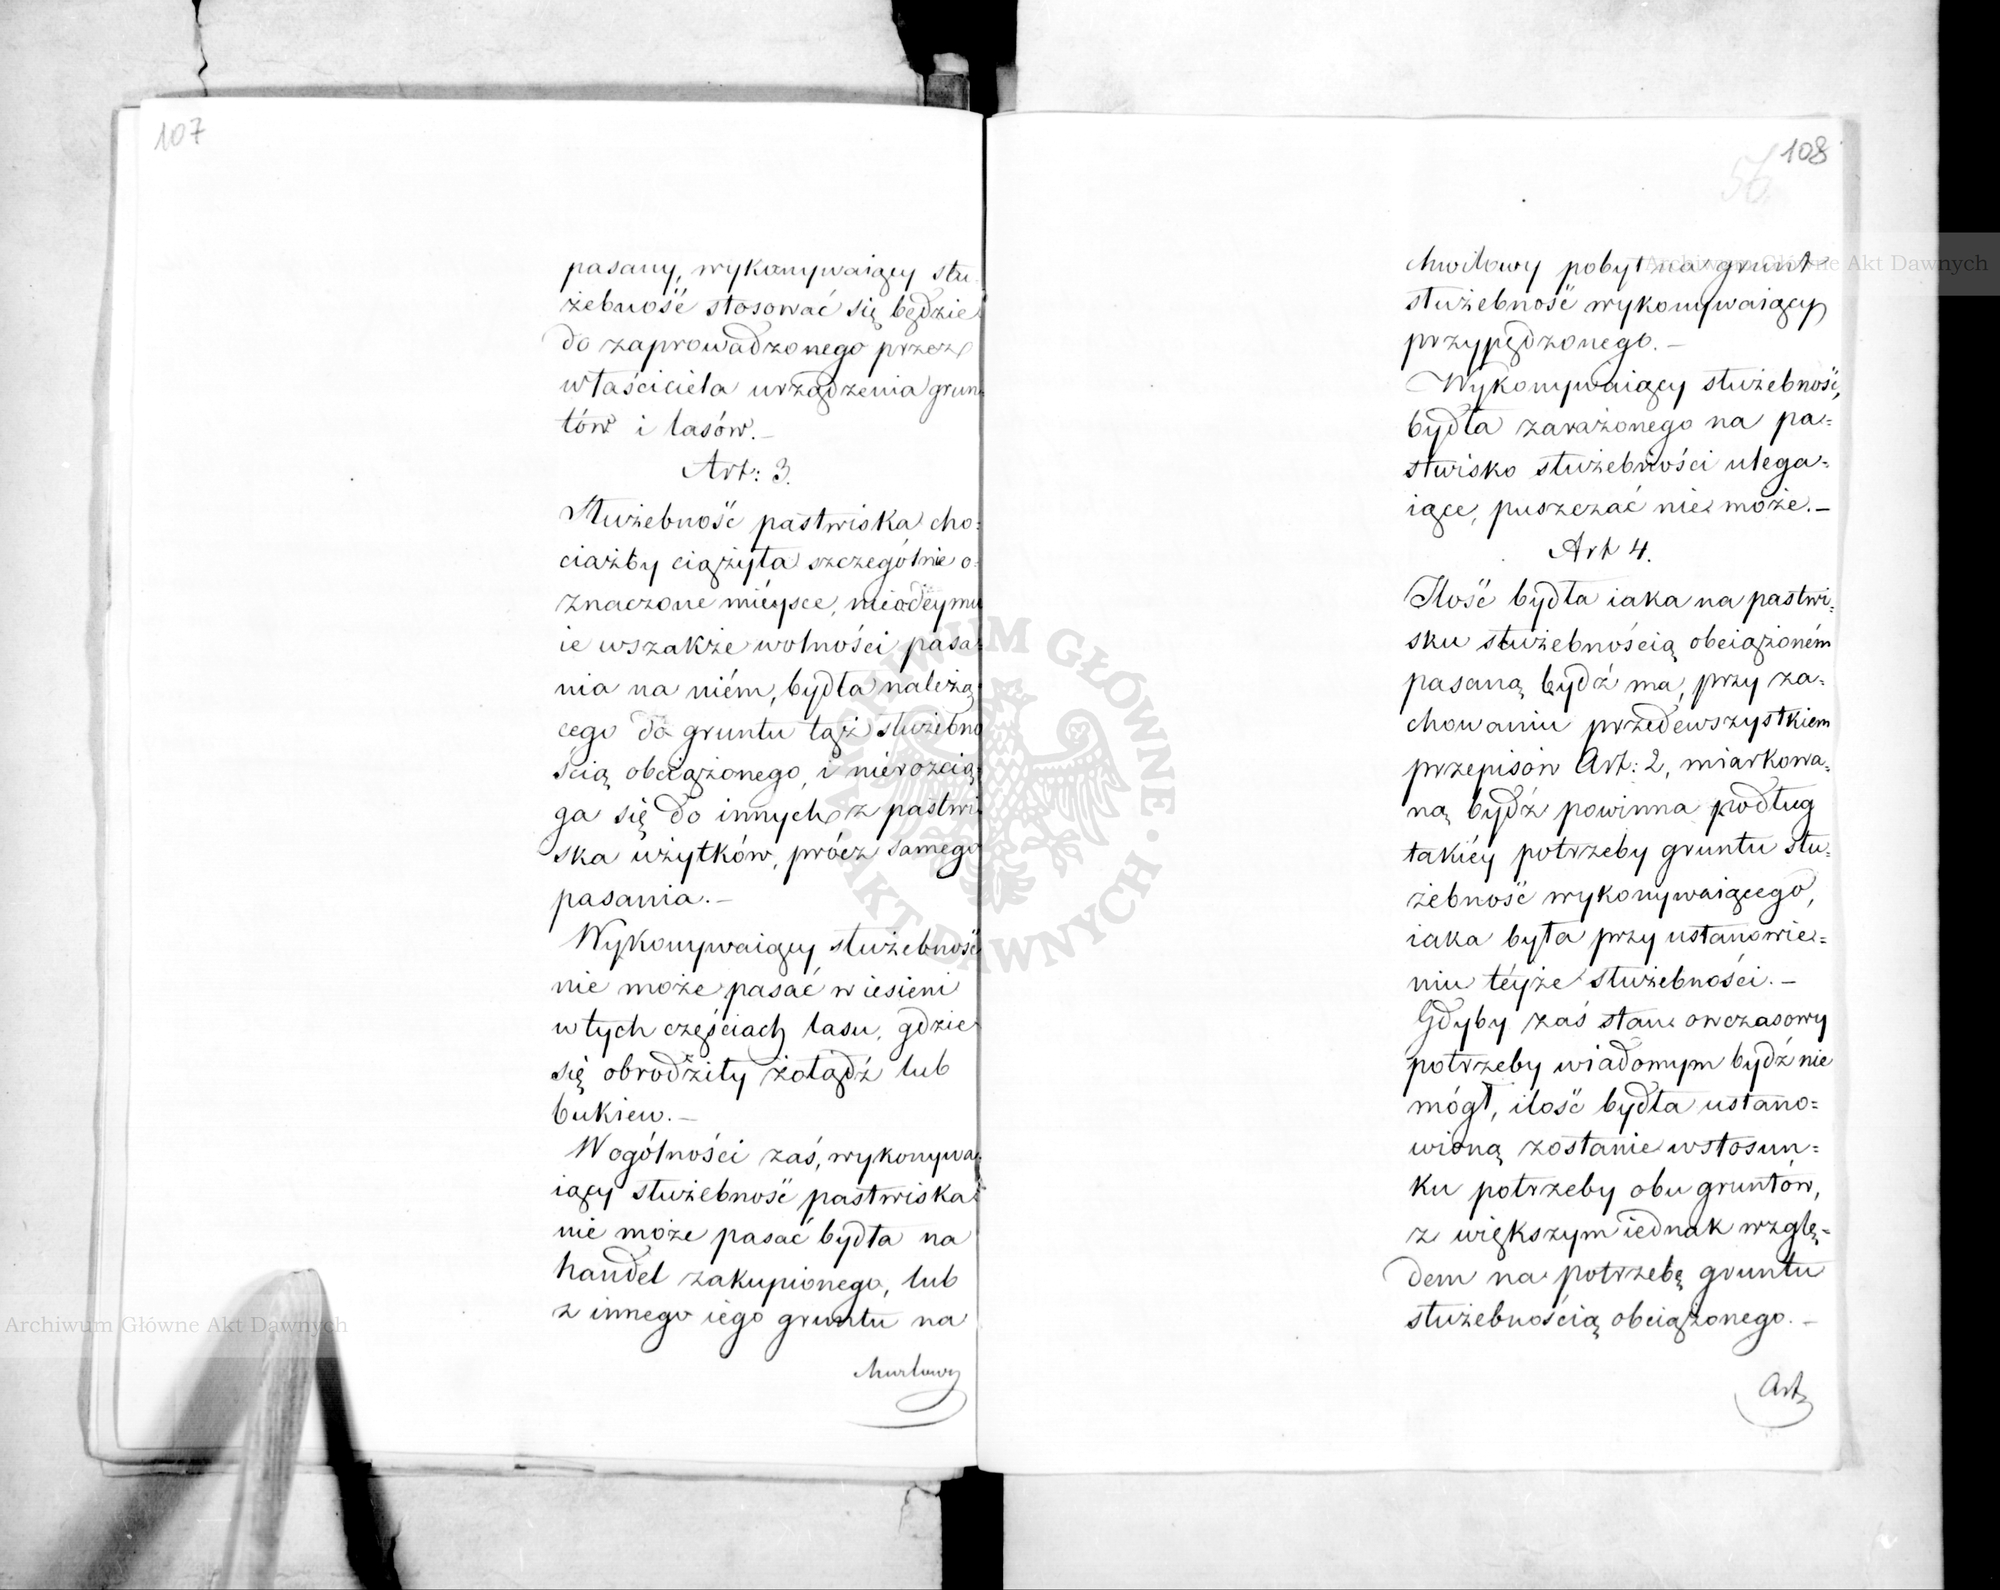 107
pasany, wykonywaiący słu
żebność stosować się będzie
do zaprowadzonego przez
właściciela urządzenia grun
tów i lasów.
Art: 3.
Służebność pastwiska cho=
ciażby ciążyła szczególnie o=
znaczone mieysce, nieodeymu
ie wszakże wolności pasa=
nia na niém, bydła należą
cego do gruntu tąż służebno
ścią obciążonego, i nierozcią
ga się do innych z pastwi
ska użytków, prócz samego
pasania.—
Wykonywaiący służebność
nie może pasać w iesieni
w tych częściach lasu, gdzie
się obrodziły żołądź lub
bukiew.—
W ogólności zaś, wykonywa=
iący służebność pastwiska
nie może pasać bydła na
handel zakupionego, lub
z innego iego gruntu na
chwilowy
108
56
chwilowy pobyt na grunt
służebność wykonywaiący
przypędzonego.—
Wykonywaiący służebność,
bydła zarażonego na pa=
stwisko służebności ulega=
iące, puszczać nie może.—
Art 4.
Ilość bydła iaka na pastwi=
sku służebnością obciążoném
pasaną bydź ma, przy za=
chowaniu przedewszystkiem
przepisów Art: 2, miarkowa=
ną bydź powinna podług
takiéy potrzeby gruntu słu=
żebność wykonywaiącego,
iaka była przy ustanowie=
niu téyże służebności.—
Gdyby zaś stan owczasowy
potrzeby wiadomym bydź nie
mógł, ilość bydła ustano=
wioną zostanie w stosun=
ku potrzeby obu gruntów,
z większym iednak wzglę=
dem na potrzebę gruntu
służebnością obciążonego.—
Art
Archiwum Główne Akt Dawnych
Archiwum Główne Akt Dawnych
ARCHIWUM GŁÓWNE · AKT DAWNYCH ·